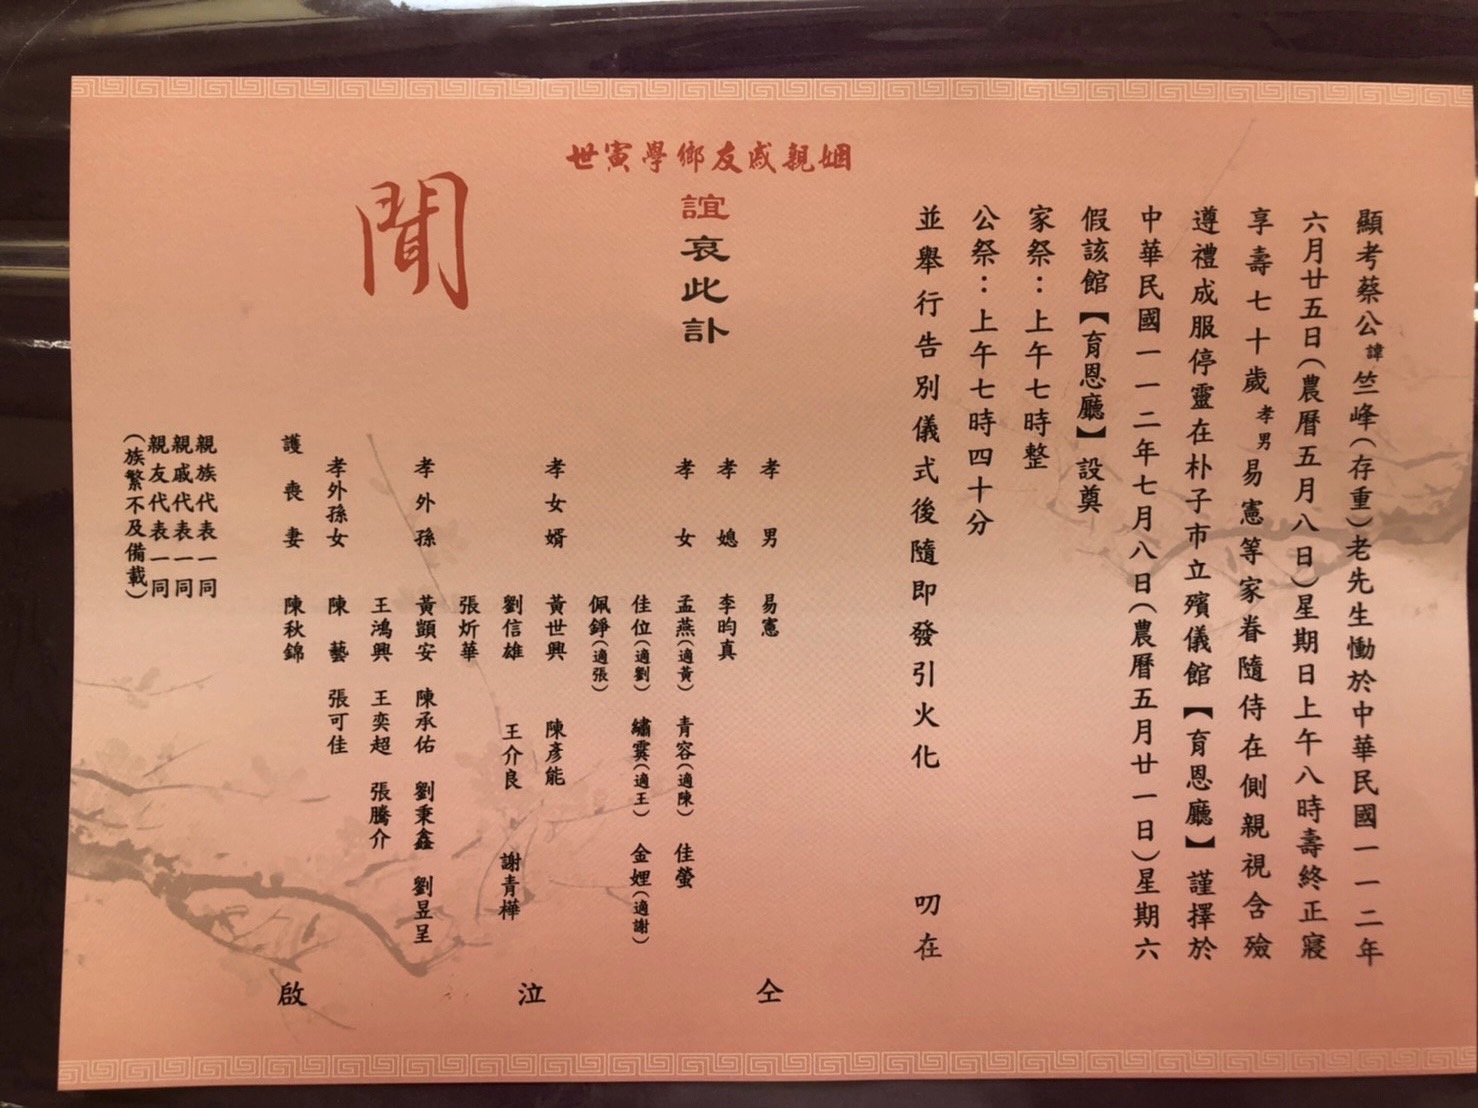 顯考蔡公諱竺峰(存重)老先生慟於中華民國一一二年
六月廿五日(農曆五月八日)星期日上午八時壽終正寢
享壽七十歲孝男易憲等家眷隨侍在側親視含殮
遵禮成服停靈在朴子市立殯儀館【育恩廳】謹擇於
中華民國一一二年七月八日(農曆五月廿一日)星期六
假該館【育恩廳】設奠
家祭:上午七時整
公祭:上午七時四十分
並舉行告別儀式後隨即發引火化 叨在
姻親戚友鄉學寅世
誼哀此訃
聞
孝男 易憲
孝媳 李昀真
孝女 孟燕(適黃) 青容(適陳) 佳螢
佳位(適劉) 繡霙(適王) 金娌(適謝)
佩錚(適張)
孝女婿 黃世興 陳彥能
劉信雄 王介良 謝青樺
張炘華
孝外孫 黃顗安 陳承佑 劉秉鑫 劉昱呈
王鴻興 王奕超 張騰介
孝外孫女 陳藝 張可佳
護喪妻 陳秋錦
仝 泣 啟
親族代表一同
親戚代表一同
親友代表一同
(族繁不及備載)